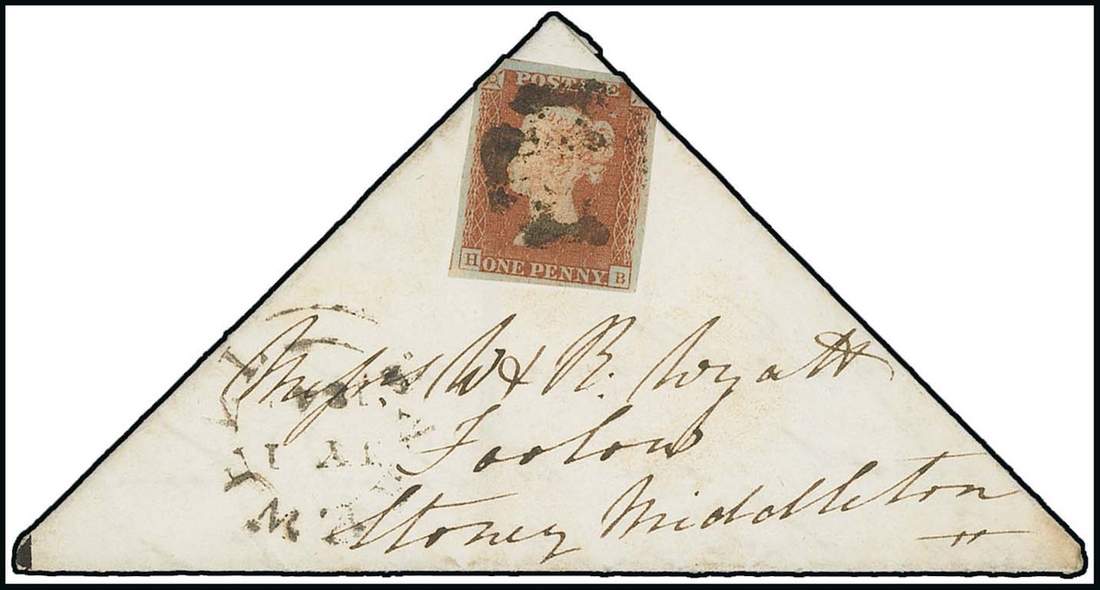 POSTAGE
H ONE PENNY B
Messrs W & R. Wyatt
Foolow
Stoney Middleton